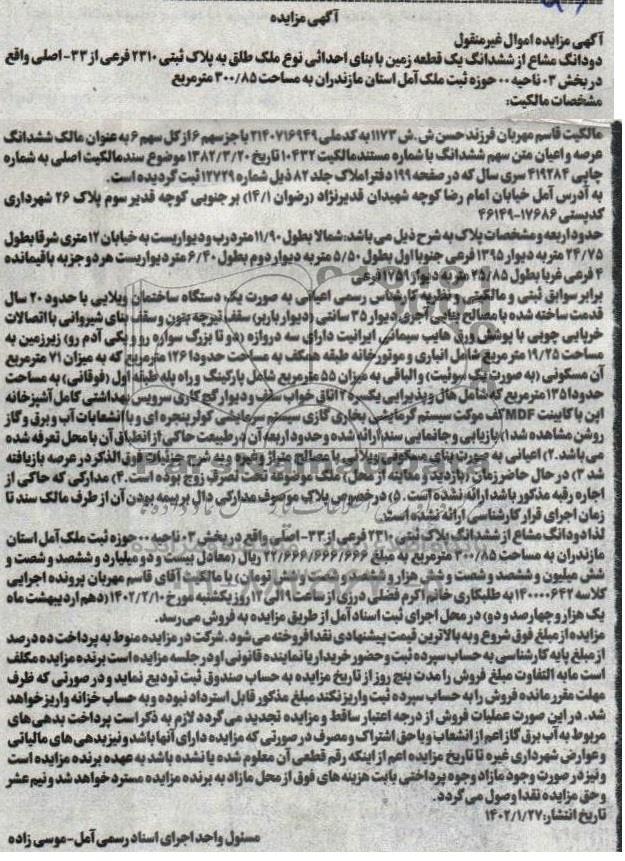 آگهی مزایده
آگهی مزایده اموال غیرمنقول
دودانگ مشاع از ششدانگ یک قطعه زمین با بنای احداثی نوع ملک طلق به پلاک ثبتی ۲۳۱۰ فرعی از ۳۳- اصلی واقع
در بخش ۰۳ ناحیه ۰۰ حوزه ثبت ملک آمل استان مازندران به مساحت ۳۰۰/۸۵ مترمربع
مشخصات مالکیت:
مالکیت قاسم مهربان فرزند حسن ش.ش ۱۱۷۳ به کدملی ۲۱۴۰۷۱۶۹۴۹ با جز سهم ۶ از کل سهم ۶ به عنوان مالک ششدانگ
عرصه و اعیان متن سهم ششدانگ با شماره مستند مالکیت ۱۰۴۳۲ تاریخ ۱۳۸۲/۳/۲۰ موضوع سند مالکیت اصلی به شماره
چاپی ۴۱۹۲۸۴ سری سال که در صفحه ۱۹۹ دفتر املاک جلد ۸۲ ذیل شماره ۱۲۷۲۹ ثبت گردیده است.
به آدرس آمل خیابان امام رضا کوچه شهیدان قدیرنژاد (رضوان ۱۴/۱) بر جنوبی کوچه قدیر سوم پلاک ۲۶ شهرداری
کدپستی ۱۷۶۸۶-۴۶۱۴۹
حدود اربعه و مشخصات پلاک به شرح ذیل می باشد: شمالا بطول ۱۱/۹۰ متر درب و دیواریست به خیابان ۱۲ متری شرقا بطول
۲۴/۷۵ متر به دیوار ۱۳۹۵ فرعی جنوبا اول بطول ۵/۵۰ متر به دیوار دوم بطول ۶/۴۰ متر دیواریست هر دو جز به باقیمانده
۴ فرعی غربا بطول ۲۵/۸۵ متر به دیوار ۱۷۵۱ فرعی
برابر سوابق ثبتی و مالکیتی و نظریه کارشناس رسمی اعیانی به صورت یک دستگاه ساختمان ویلایی با حدود ۲۰ سال
قدمت ساخته شده با مصالح بنایی آجری دیوار ۳۵ سانتی (دیوار باربر) سقف تیرچه بتون و سقف بنای شیروانی با اتصالات
خرپایی چوبی با پوشش ورق هایپ سیمانی ایرانیت دارای سه دروازه (دو تا بزرگ سواره رو و یکی آدم رو) زیرزمین به
مساحت ۱۹/۲۵ متر مربع شامل انباری و موتورخانه طبقه همکف به مساحت حدودا ۱۲۶ مترمربع که به میزان ۷۱ مترمربع
آن مسکونی (به صورت یک سوئیت) و الباقی به میزان ۵۵ مترمربع شامل پارکینگ و راه پله طبقه اول (فوقانی) به مساحت
حدودا ۱۳۵ مترمربع که شامل هال و پذیرایی یکسره ۲ اتاق خواب سقف و دیوار گچ کاری سرویس بهداشتی کامل آشپزخانه
اپن با کابینت MDF کف موکت سیستم گرمایشی بخاری گازی سیستم سرمایشی کولر پنجره ای و با انشعابات آب و برق و گاز
روشن مشاهده شد ۱) بازیابی و جانمایی سند ارائه شده و حدود اربعه آن در طبیعت حاکی از انطباق آن با محل تعرفه شده
می باشد. ۲) اعیانی به صورت بنای مسکونی ویلائی با مصالح متراژ وغیره و به شرح جزئیات فوق الذکر در عرصه بازیافته
شد ۳) در حال حاضر زمان (بازدید و معاینه از محل) ملک موضوعه تحت تصرف زوج بوده است. ۴) مدارکی که حاکی از
اجاره رقبه مذکور باشد ارائه نشده است. ۵) در خصوص پلاک موصوف مدارکی دال بر بیمه بودن آن از طرف مالک سند تا
زمان اجرای قرار کارشناسی ارائه نشده است.
لذا دو دانگ مشاع از ششدانگ پلاک ثبتی ۲۳۱۰ فرعی از ۳۳- اصلی واقع در بخش ۰۳ ناحیه ۰۰ حوزه ثبت ملک آمل استان
مازندران به مساحت ۳۰۰/۸۵ مترمربع به مبلغ ۲۲/۶۶۶/۶۶۶/۶۶۶ ریال (معادل بیست و دو میلیارد و ششصد و شصت و
شش میلیون و ششصد و شصت و شش هزار و ششصد و شصت و شش تومان) با مالکیت آقای قاسم مهربان پرونده اجرایی
کلاسه ۱۴۰۰۰۰۶۴۲ به طلبکاری خانم اکرم فضلی درزی از ساعت ۹ الی ۱۲ روز یکشنبه مورخ ۱۴۰۲/۲/۱۰ (دهم اردیبهشت ماه
یک هزار و چهارصد و دو) در محل اجرای ثبت اسناد آمل از طریق مزایده به فروش می رسد.
مزایده از مبلغ فوق شروع و به بالاترین قیمت پیشنهادی نقدا فروخته می شود. شرکت در مزایده منوط به پرداخت ده درصد
از مبلغ پایه کارشناسی به حساب سپرده ثبت و حضور خریدار یا نماینده قانونی او در جلسه مزایده است برنده مزایده مکلف
است مابه التفاوت مبلغ فروش را مدت پنج روز از تاریخ مزایده به حساب صندوق ثبت تودیع نماید و در صورتی که ظرف
مهلت مقرر مانده فروش را به حساب سپرده ثبت واریز نکند مبلغ مذکور قابل استرداد نبوده و به حساب خزانه واریز خواهد
شد. در این صورت عملیات فروش از درجه اعتبار ساقط و مزایده تجدید می گردد لازم به ذکر است پرداخت بدهی های
مربوط به آب برق گاز اعم از انشعاب و یا حق اشتراک و مصرف در صورتی که مزایده دارای آنها باشد و نیز بدهی های مالیاتی
و عوارض شهرداری غیره تا تاریخ مزایده اعم از اینکه رقم قطعی آن معلوم شده یا نشده باشد به عهده برنده مزایده است
و نیز در صورت وجود مازاد وجوه پرداختی بابت هزینه های فوق از محل مازاد به برنده مزایده مسترد خواهد شد و نیم عشر
و حق مزایده نقدا وصول می گردد.
تاریخ انتشار: ۱۴۰۲/۱/۲۷
مسئول واحد اجرای اسناد رسمی آمل-موسی زاده